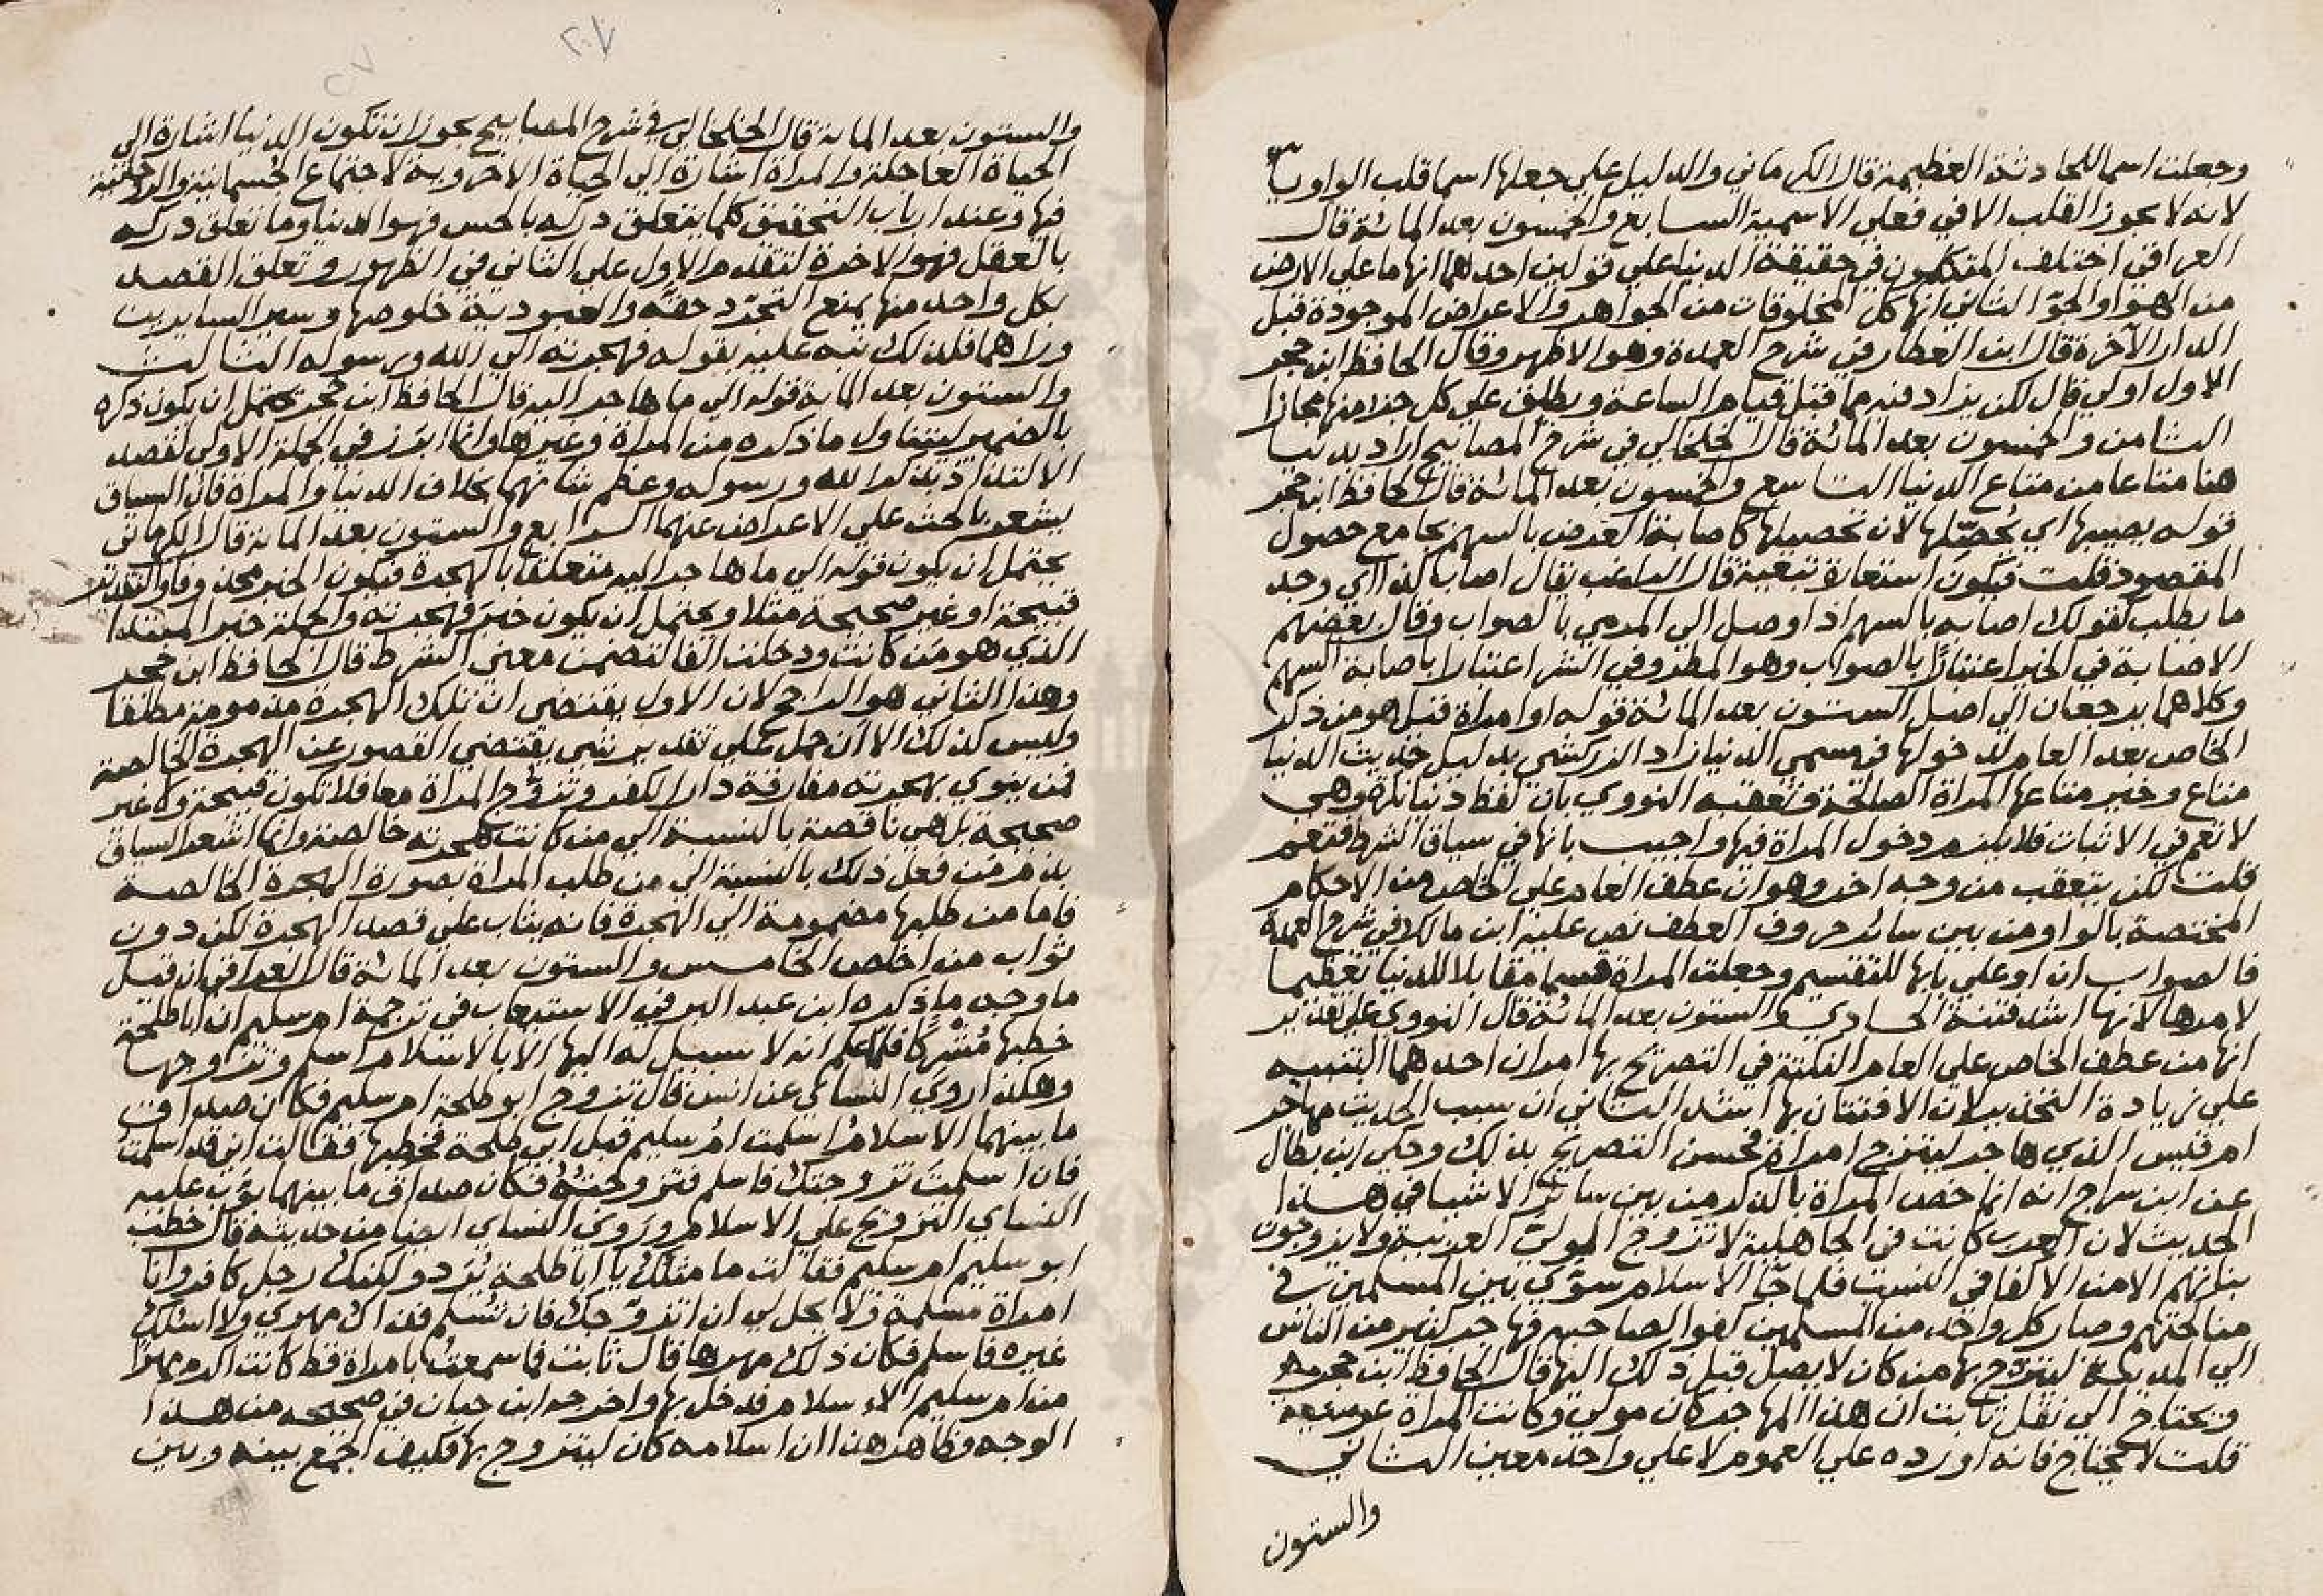 وجعلت اسما للحادثة العظيمة قال الكرماني والدليل علي جعلها اسما قلب الواو يا
لانه لا يجوز القلب الا في فعلي الاسمية السابع والخمسون بعد المائة قال
العراقي اختلف المتكلمون في حقيقة الدنيا علي قولين احدهما انها ما علي الارض
من الهوا والجو الثاني انها كل المخلوقات من الجواهر والاعراض الموجودة قبل
الدار الآخرة قال ابن العطار في شرح العمدة وهو الاظهر وقال الحافظ ابن حجر
الاول اولي قال لكن يزاد فيه مما قبل قيام الساعة ويطلق علي كل جزء منها مجازا
الثامن والخمسون بعد المائة قال الخلخالي في شرح المصابيح اراد بدنيا
هنا متاعا من متاع الدنيا التاسع والخمسون بعد المائة قال الحافظ ابن حجر
قوله يصيبها اي يحصّلها لان تحصيلها كاصابة الغرض بالسهم بجامع حصول
المقصود قلت فيكون استعارة تبعية قال الراغب يقال اصاب كذا اي وجد
ما يطلب كقولك اصابه بالسهم اذا وصل الي المرمي بالصواب وقال بعضهم
الاصابة في الخير اعتبارًا بالصواب وهو المطر وفي الشر اعتبارا باصابة السهم
وكلاهما يرجعان الي اصل الستون بعد المائة قوله او امراة قيل هو من ذكر
الخاص بعد العام لدخولها في مسمي الدنيا زاد الزركشي بدليل حديث الدنيا
متاع وخير متاعها المراة الصالحة وتعقبه النووي بان لفظ دنيا نكرة وهي
لا تعم في الاثبات فلا يلزم دخول المراة فيها واجيب بانها في سياق الشرط فتعم
قلت لكن يتعقب من وجه اخر وهو ان عطف العام علي الخاص من الاحكام
المختصة بالواو من بين سائر حروف العطف نص عليه ابن مالك في شرح العمدة
فالصواب ان او علي بابها للتقسيم وجعلت المراة قسما مقابلا للدنيا تعظيما
لامرها لانها اشد فتنة الحادي والستون بعد المائة قال النووي علي تقدير
انها من عطف الخاص علي العام النكتة في التصريح بها امران احدهما التنبيه
علي زيادة التحذير لان الافتتان بها اشد الثاني ان سبب الحديث مهاجر
ام قيس الذي هاجر ليتزوج امراة فحسن التصريح بذلك وحكي ابن بطال
عن ابن سراج انه انما خص المراة بالذكر من بين سائر الاشيا في هذا
الحديث لان العرب كانت في الجاهلية لا تزوج المولي العربية ولا يزوجون
بناتهم الا من الاكفا في النسب فلما جآ الاسلام سوّي بين المسلمين في
مناكحتهم وصار كل واحد من المسلمين كفوا لصاحبه فهاجر كثير من الناس
الي المدينة ليتزوج بها من كان لا يصل قبل ذلك اليها قال الحافظ ابن حجر
ويحتاج الي نقل ثابت ان هذا المهاجر كان مولي وكانت المراة عربية
قلت لا يحتاج فانه اورده علي العموم لا علي واحد معين الثاني
والستون
والستون بعد المائة قال الخلخالي في شرح المصابيح يجوز ان تكون الدنيا اشارة الي
الحياة العاجلة والمراة اشارة الي الحياة الاخروية لاجتماع الجسمانية والروحانية
فيها وعند ارباب التحقيق كلما يتعلق دركه بالحس فهو الدنيا وما تعلق دركه
بالعقل فهو الاخرة لتقدم الاول علي الثاني في الظهور وتعلق القصد
بكل واحد منها يمنع التجرّد حقّه والعبودية خلوصها وسير السايرين
وراهما فلذلك نبه عليه بقوله فهجرته الي الله ورسوله الثالث
والستون بعد المائة قوله الي ما هاجر اليه قال الحافظ ابن حجر يحتمل ان يكون ذكره
بالضمير ليتناول ما ذكره من المراة وغيرها وانما ابرز في الجملة الاولي لقصد
الالتذاذ بذكر الله ورسوله وعظم شانهما بخلاف الدنيا والمراة فان السياق
يشعر بالحث علي الاعراض عنهما الرابع والستون بعد المائة قال الكرماني
يحتمل ان يكون قوله الي ما هاجر اليه متعلقا بالهجرة فيكون الخبر محذوفا والتقدير
قبيحة او غير صحيحة مثلا ويحتمل ان يكون خبر فهجرته والجملة خبر المبتدا
الذي هو من كانت ودخلت الفا لتضمن معني الشرط قال الحافظ ابن حجر
وهذا الثاني هو الراجح لان الاول يقتضي ان تلك الهجرة مذمومة مطلقا
وليس كذلك الا ان حمل علي تقدير شي يقتضي القصور عن الهجرة الخالصة
فمن ينوي بهجرته مفارقة دار الكفر وتزوج المراة معا فلا تكون قبيحة ولا غير
صحيحة بل هي ناقصة بالنسبة الي من كانت هجرته خالصة وانما اشعر السياق
بذم من فعل ذلك بالنسبة الي من طلب المراة بصورة الهجرة الخالصة
فاما من طلبها مضمومة الي الهجرة فانه يثاب علي قصد الهجرة لكن دون
ثواب من اخلص الخامس والستون بعد المائة قال العراقي ان قيل
ما وجه ما ذكره ابن عبد البر في الاستيعاب في ترجمة ام سليم ان ابا طلحة
خطبها مُشركا فلما علم انه لا سبيل له اليها الا بالاسلام اسلم وتزوجها
وهكذا روي النسائي عن انس قال تزوج ابو طلحة ام سليم فكان صداق
ما بينهما الاسلام اسلمت ام سليم قبل ابي طلحة فخطبها فقالت اني قد اسلمت
فان اسلمت تزوجتك فاسلم فتزوجته فكان صداق ما بينهما بوّب عليه
النساي التزويج علي الاسلام وروي النساي ايضا من حديثه قال خطب
ابو سليم ام سليم فقالت ما مثلك يا ابا طلحة يُرد ولكنك رجل كافر وانا
امراة مسلمة ولا يحل لي ان اتزوجك فان تُسلم فذاك مهري ولا اسئلك
غيره فاسلم فكان ذلك مهرها قال ثابت فما سمعت بامراة قط كانت اكرم مهرا
من ام سليم الاسلام فدخل بها واخرجه ابن حبان في صحيحه من هذا
الوجه وظاهر هذا ان اسلامه كان ليتزوج بها فكيف الجمع بينه وبين